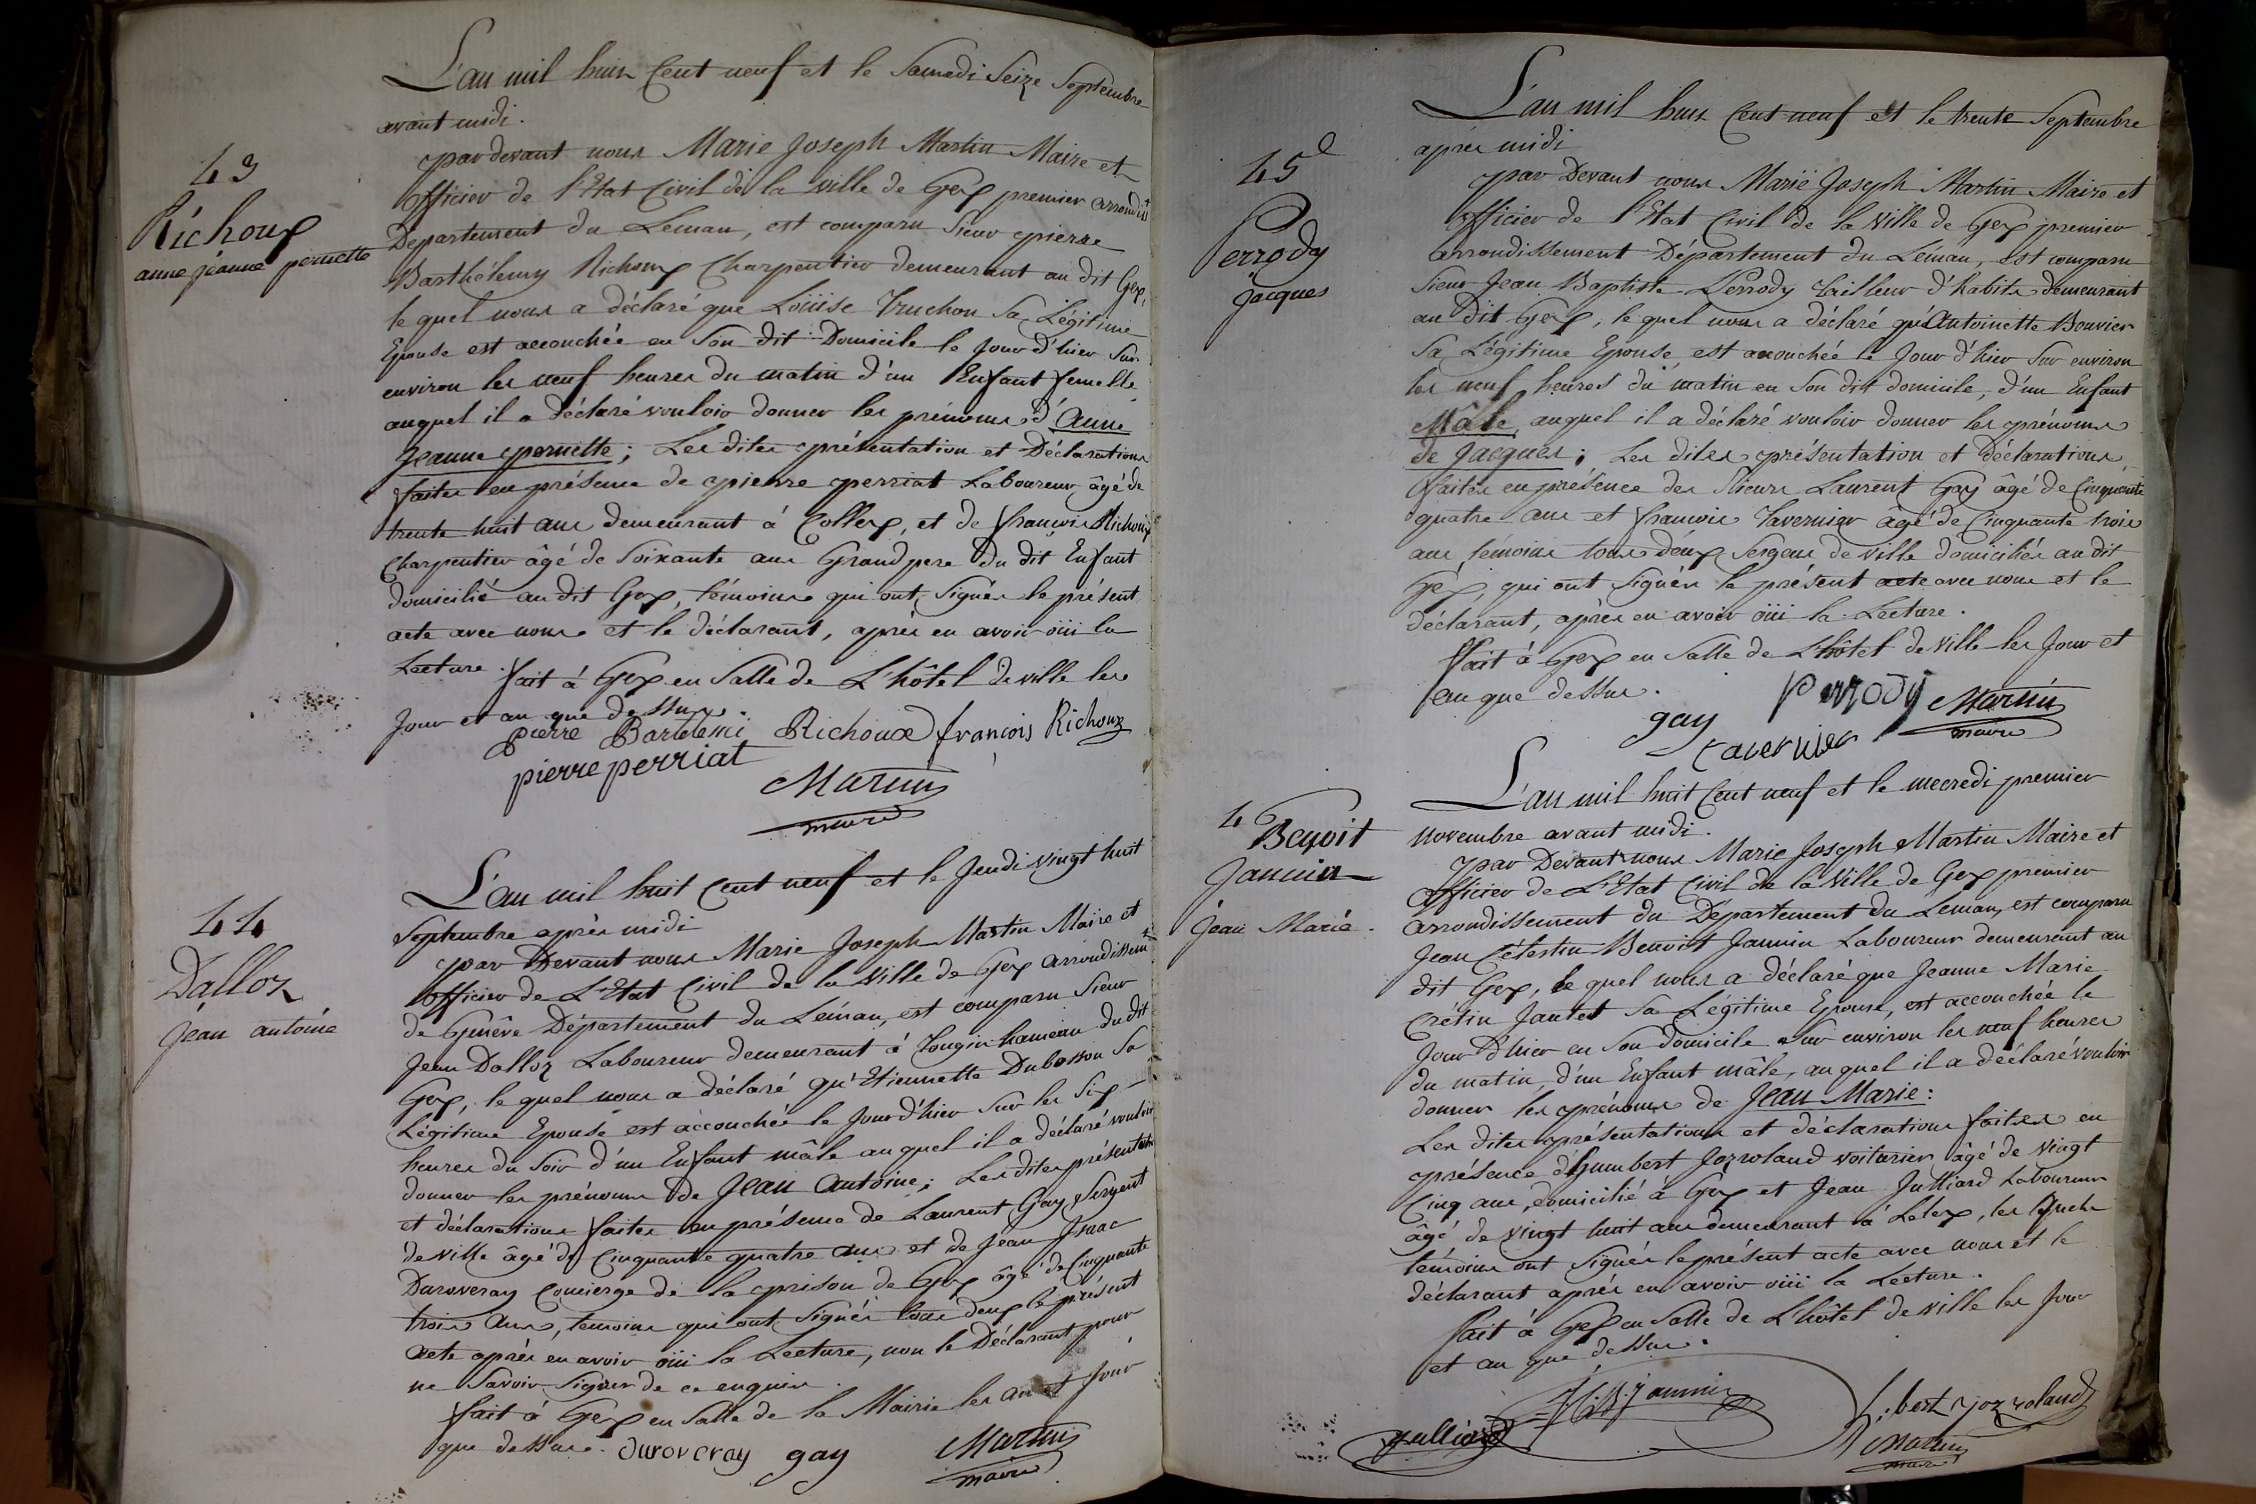 L'an mil huit Cent neuf et le Samedi Seize Septembre
avant midi.
43
Richoux
anne jeanne pernette
par devant nous Marie Joseph Martin Maire et
Officier de l'Etat Civil de la Ville de Gex premier arrondist
Departement du Leman, est comparu Sieur pierre
Barthélemy Richoux Charpentier demeurant au dit Gex,
le quel nous a déclaré que Loüise Truchon Sa Légitime
Epouse est accouchée en Son dit Domicile le Jour d'hier Sur
environ les neuf heures du matin d'un Enfant femelle
auquel il a déclaré vouloir donner les prénoms d'Anne
Jeanne pernette; Les dites présentation et Déclarations
faites en présence de pierre perriat Laboureur âgé de
trente huit ans demeurant à Collex, et de françois Richoux
Charpentier âgé de Soixante ans Grand pere du dit Enfant
domicilié au dit Gex, témoins qui ont Signés le présent
acte avec nous et le déclarant, après en avoir öüi la
Lecture. fait à Gex en Salle de L'hôtel de ville les
Jour et an que dessus.
pierre Bartelemi Richoux françois Richoux
pierre perriat
Martin
maire
44
Dalloz
Jean antoine
L'an mil huit Cent neuf et le Jeudi vingt huit
Septembre après midi
par Devant nous Marie Joseph Martin Maire et
Officier de L'Etat Civil de la Ville de Gex arrondissemt
de Genêve Département du Léman, est comparu Sieur
Jean Dalloz Laboureur demeurant à Tougin hameau du dit
Gex, le quel nous a déclaré qu'Etiennette Dubosson Sa
Légitime Epouse est accouchée le Jour d'hier Sur les Six
heures du Soir d'un Enfant mâle auquel il a déclaré vouloir
donner les prénoms de Jean Antoine; Les dites présentation
et déclarations faites en présence de Laurent Gay Sergent
de ville âgé de Cinquante quatre ans et de Jean Isaac
Duroveray Concierge de la prison de Gex âgé de Cinquante
trois ans, témoins qui ont Signés tous deux le présent
acte après en avoir öüi la Lecture, non le Déclarant pour
ne Savoir Signer de ce enquis.
fait à Gex en Salle de la Mairie les an et Jour
que dessus. Duroveray gay Martin
maire
45
Perrody
Jacques
L'an mil huit Cent neuf et le trente Septembre
après midi
par Devant nous Marie Joseph Martin Maire et
Officier de l'Etat Civil de la Ville de Gex premier
arrondissement Département du Léman, est comparu
Sieur Jean Baptiste Perrody Tailleur d'habits demeurant
au dit Gex, le quel nous a déclaré qu'Antoinette Bouvier
Sa Légitime Epouse est accouchée le Jour d'hier Sur environ
les neuf heures du matin en Son dit domicile, d'un Enfant
Mâle, auquel il a déclaré vouloir donner les prénoms
de Jacques; Les dites présentation et déclarations
faites en présence des Sieurs Laurent Gay âgé de Cinquante
quatre ans et françois Tavernier âgé de Cinquante trois
ans, témoins tous deux Sergens de ville domiciliés au dit
Gex, qui ont Signés le présent acte avec nous et le
déclarant, après en avoir öüi la Lecture.
fait à Gex en Salle de L'hôtel de Ville les Jour et
an que dessus.
gay Perrody Martin
Tavernier maire
4
Benoit
Jannin
Jean Marie.
L'an mil huit Cent neuf et le mecredi premier
Novembre avant midi.
par Devant nous Marie Joseph Martin Maire et
Officier de L'Etat Civil de la Ville de Gex premier
arrondissement du Département du Leman, est comparu
Jean Célestin Benoist Jannin Laboureur demeurant au
dit Gex, le quel nous a déclaré que Jeanne Marie
Crétin Jantet Sa Légitime Epouse, est accouchée le
Jour d'hier en Son domicile Sur environ les neuf heures
du matin, d'un Enfant mâle, auquel il a déclaré vouloir
donner les prénoms de Jean Marie:
Les dites présentations et déclarations faites en
présence d'Humbert Jozroland voiturier âgé de vingt
Cinq ans, domicilié à Gex et Jean Julliard Laboureur
âgé de vingt huit ans demeurant à Lelex, les quels
témoins ont Signés le présent acte avec nous et le
déclarant après en avoir öüi la Lecture.
fait à Gex en Salle de L'hôtel de ville les Jour
et an que dessus.
Julliard Jannin bert jozroland
Martin
maire